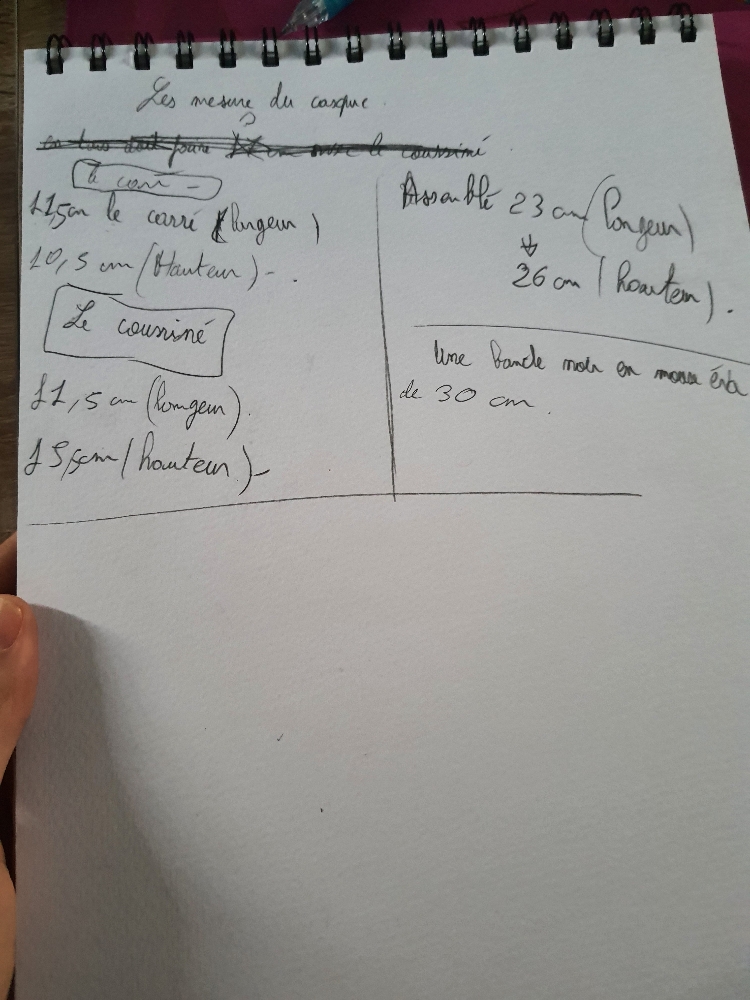 Les mesure du casque.
en tous doit faire le coussiné
le carré -
11,5cm le carré (longeur)
10,5 cm (Hauteur) - .
Le coussiné
11,5 cm (longeur).
15,5cm (hauteur) -
Assemblé 23 cm (longeur)
↓
26 cm (hauteur).
Une bande noir en mousse éva
de 30 cm.